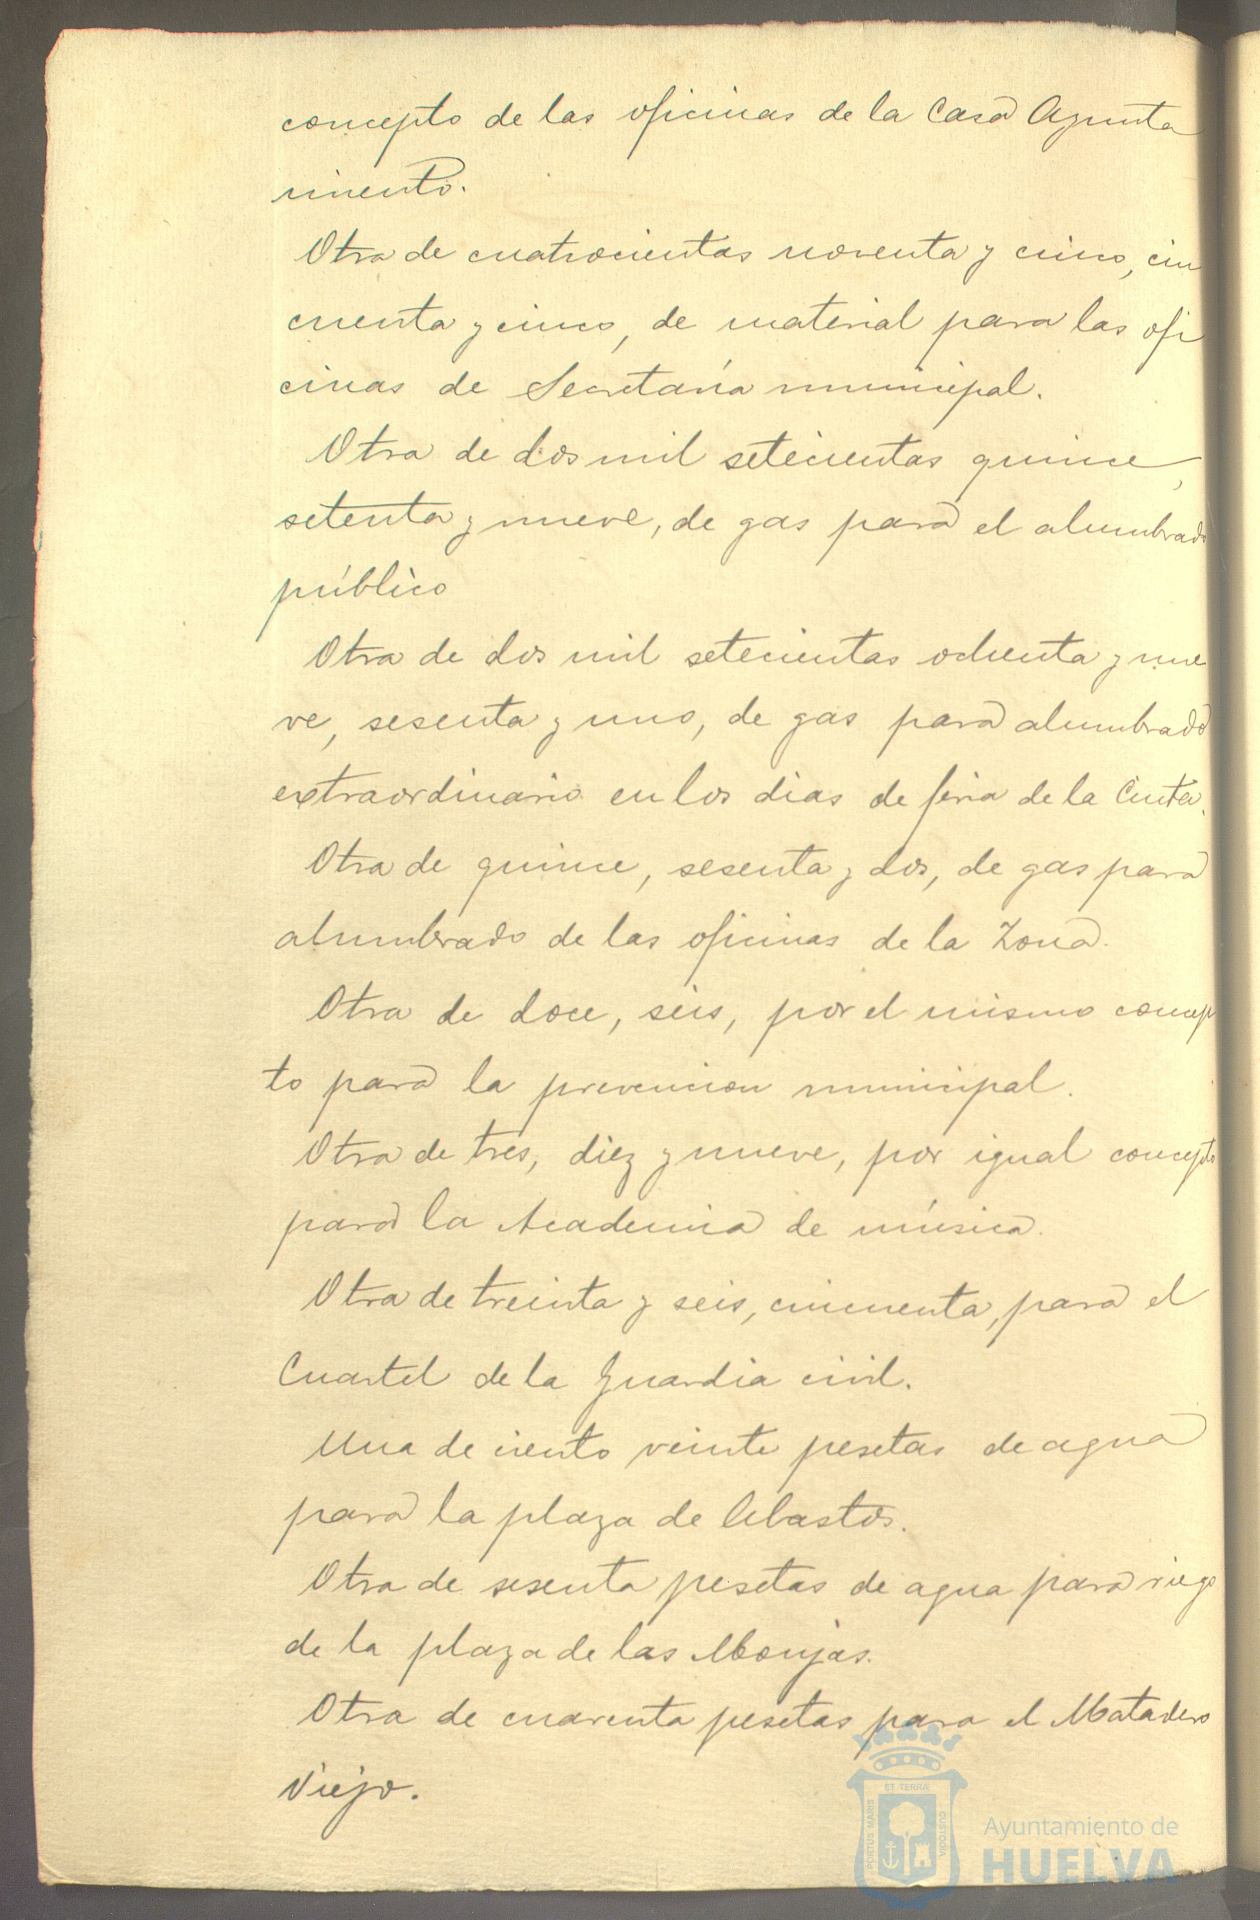 concepto de las oficinas de la Casa Ayunta
miento.
Otra de cuatrocientas noventa y cinco, cin
cuenta y cinco, de material para las ofi
cinas de Secretaría municipal.
Otra de dos mil setecientas quince,
setenta y nueve, de gas para el alumbrado
público
Otra de dos mil setecientas ochenta y nue
ve, sesenta y uno, de gas para alumbrado
extraordinario en los dias de feria de la Cinta.
Otra de quince, sesenta y dos, de gas para
alumbrado de las oficinas de la Zona.
Otra de doce, seis, por el mismo concep
to para la prevencion municipal.
Otra de tres, diez y nueve, por igual concepto
para la Academia de música.
Otra de treinta y seis, cincuenta, para el
Cuartel de la Guardia civil.
Una de ciento veinte pesetas de agua
para la plaza de Abastos.
Otra de sesenta pesetas de agua para riego
de la plaza de las Monjas.
Otra de cuarenta pesetas para el Matadero
Viejo.
ET TERRÆ
PORTUS MARIS
CUSTODIA
Ayuntamiento de
HUELVA